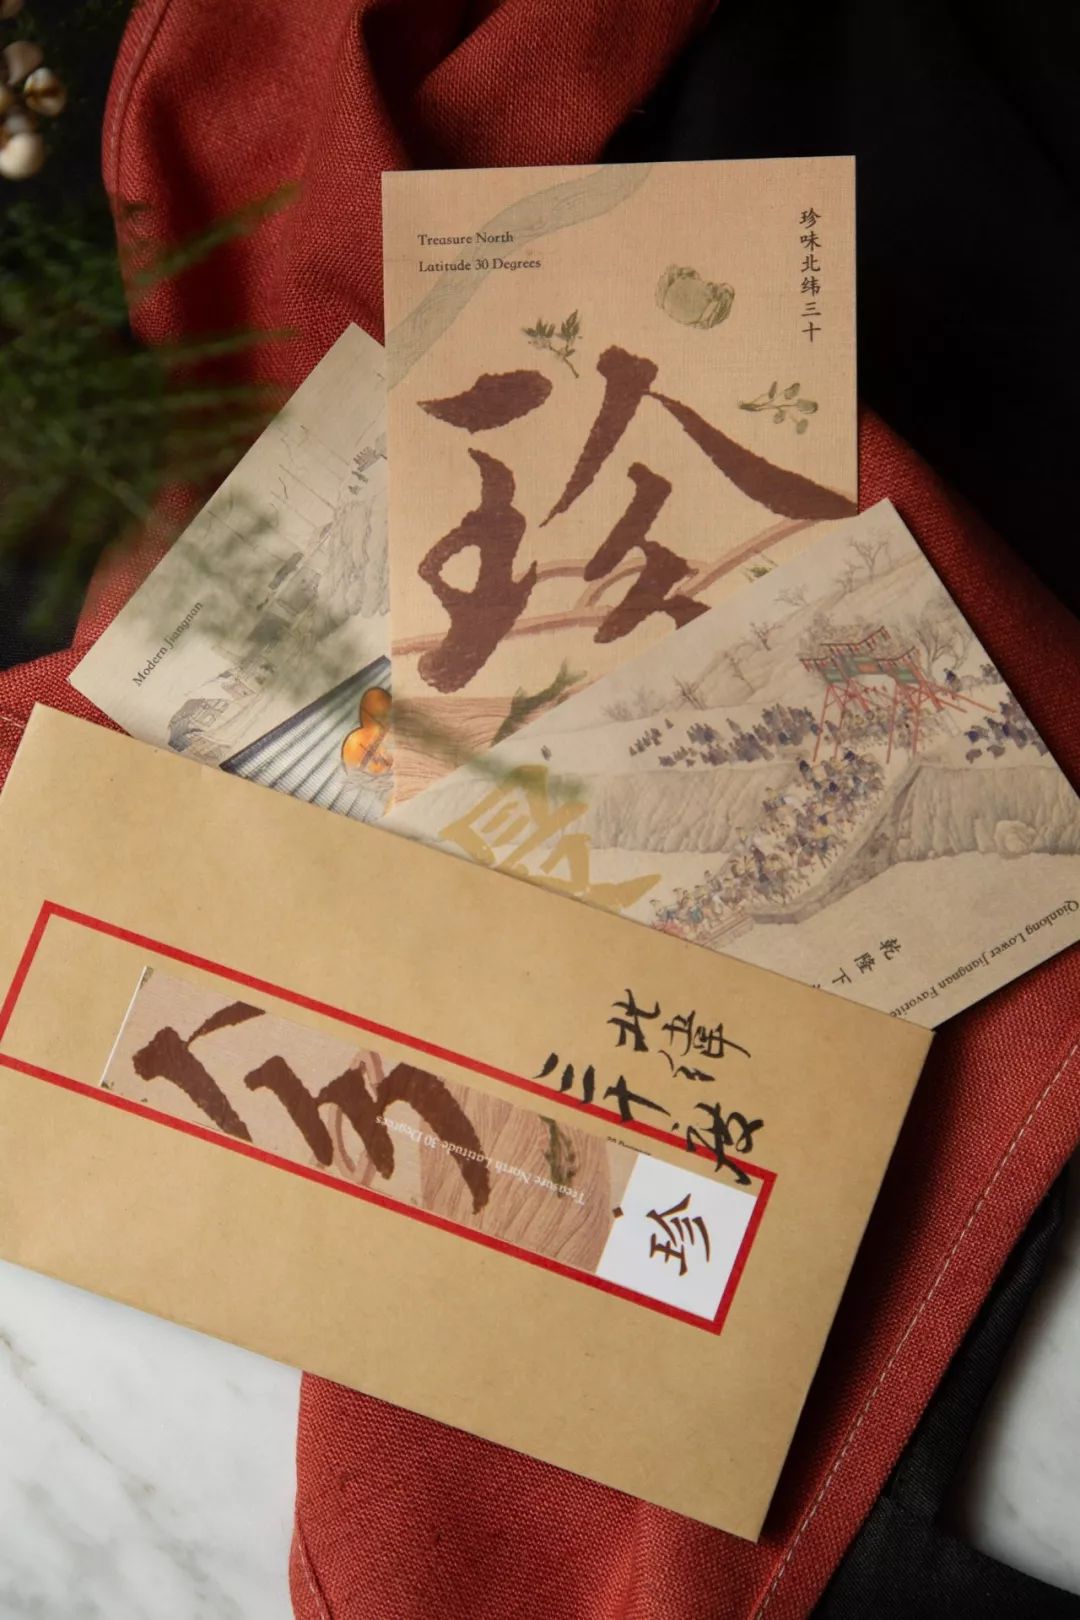 Treasure North
Latitude 30 Degrees
珍味北纬三十
珍
Modern Jiangnan
Qianlong Lower Jiangnan Favorite
乾隆下
北纬
三十度
Treasure North Latitude 30 Degrees
珍